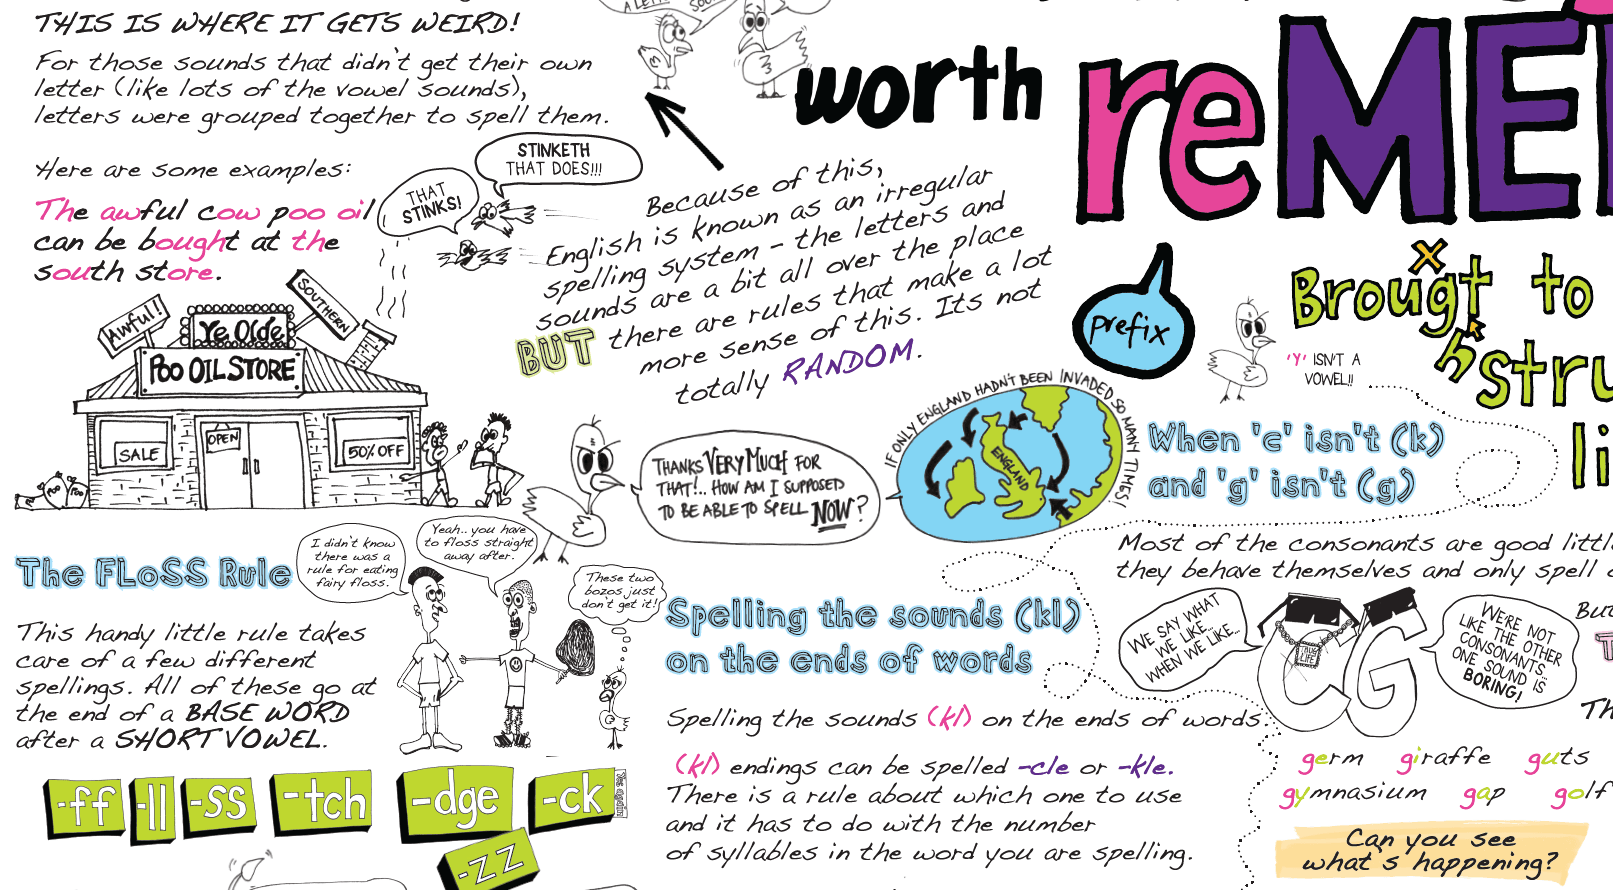 THIS IS WHERE IT GETS WEIRD!
For those sounds that didn't get their own
letter (like lots of the vowel sounds),
letters were grouped together to spell them.
Here are some examples:
The awful cow poo oil
can be bought at the
south store.
THAT
STINKS!
STINKETH
THAT DOES!!!
Awful!
Ye Olde
SOUTHERN
POO OIL STORE
SALE
OPEN
50% OFF
POO
POO
A
worth
reME
prefix
Because of this,
English is known as an irregular
spelling system - the letters and
sounds are a bit all over the place
BUT there are rules that make a lot
more sense of this. Its not
totally RANDOM.
THANKS VERY MUCH FOR
THAT!.. HOW AM I SUPPOSED
TO BE ABLE TO SPELL NOW?
IF ONLY ENGLAND HADN'T BEEN INVADED SO MANY TIMES!
ENGLAND
Brougt to
h
stru
li
'Y' ISN'T A
VOWEL!!
When 'c' isn't (k)
and 'g' isn't (g)
Most of the consonants are good littl
they behave themselves and only spell
WE SAY WHAT
WE LIKE...
WHEN WE LIKE...
THUG
LIFE
CG
WE'RE NOT
LIKE THE OTHER
CONSONANTS..
ONE SOUND IS
BORING!
Bu
T
Th
germ giraffe guts
gymnasium gap golf
Can you see
what's happening?
The FLoSS Rule
I didn't know
there was a
rule for eating
fairy floss.
Yeah.. you have
to floss straight
away after.
These two
bozos just
don't get it!
This handy little rule takes
care of a few different
spellings. All of these go at
the end of a BASE WORD
after a SHORT VOWEL.
-ff
-ll
-ss
-tch
-dge
-ck
-zz
Spelling the sounds (kl)
on the ends of words
Spelling the sounds (kl) on the ends of words.
(kl) endings can be spelled -cle or -kle.
There is a rule about which one to use
and it has to do with the number
of syllables in the word you are spelling.